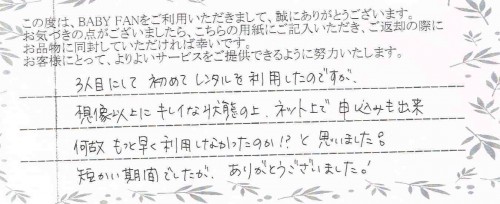 この度は、BABY FANをご利用いただきまして、誠にありがとうございます。
お気づきの点がございましたら、こちらの用紙にご記入いただき、ご返却の際に
お品物に同封していただければ幸いです。
お客様にとって、よりよいサービスをご提供できるように努力いたします。
3人目にして 初めて レンタルを利用したのですが、
想像以上に キレイな状態の上、ネット上で 申込みも出来
何故 もっと早く利用しなかったのか!? と 思いました。
短かい期間でしたが、ありがとうございました!